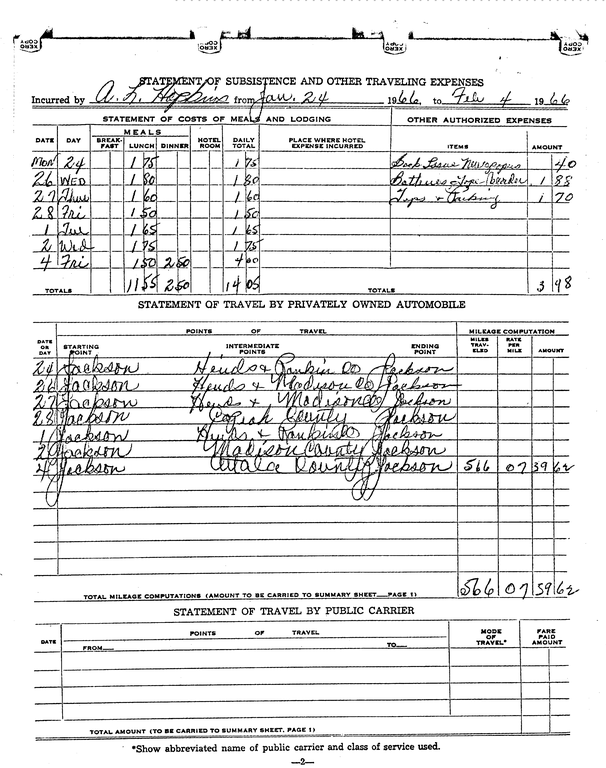 STATEMENT OF SUBSISTENCE AND OTHER TRAVELING EXPENSES
Incurred by A. L. Hopkins from Jan. 24 1966 to Feb 4 1966
STATEMENT OF COSTS OF MEALS AND LODGING OTHER AUTHORIZED EXPENSES
DATE DAY MEALS BREAK-FAST LUNCH DINNER HOTEL ROOM DAILY TOTAL PLACE WHERE HOTEL EXPENSE INCURRED ITEMS AMOUNT
Mon 24 1 75 1 75 Newspapers 40
26 WED 1 80 1 80 Batteries Tape 1 88
27 Thus 1 60 1 60 Tips & Parking 1 70
28 Fri 1 50 1 50
1 Tue 1 65 1 65
2 Wed 1 75 1 75
4 Fri 1 50 2 50 4 00
TOTALS 11 55 2 50 14 05 TOTALS 3 98
STATEMENT OF TRAVEL BY PRIVATELY OWNED AUTOMOBILE
POINTS OF TRAVEL MILEAGE COMPUTATION
DATE OR DAY STARTING POINT INTERMEDIATE POINTS ENDING POINT MILES TRAV-ELED RATE PER MILE AMOUNT
24 Jackson Hinds & Rankin Co Jackson
26 Jackson Hinds & Madison Co Jackson
27 Jackson Hinds & Madison Co Jackson
28 Jackson Copiah County Jackson
1 Jackson Hinds & Rankin Co Jackson
2 Jackson Madison County Jackson
4 Jackson Attala County Jackson 566 07 39 62
TOTAL MILEAGE COMPUTATIONS (AMOUNT TO BE CARRIED TO SUMMARY SHEET PAGE 1) 566 07 39 62
STATEMENT OF TRAVEL BY PUBLIC CARRIER
DATE POINTS OF TRAVEL FROM TO MODE OF TRAVEL* FARE PAID AMOUNT
TOTAL AMOUNT (TO BE CARRIED TO SUMMARY SHEET, PAGE 1)
*Show abbreviated name of public carrier and class of service used.
—2—